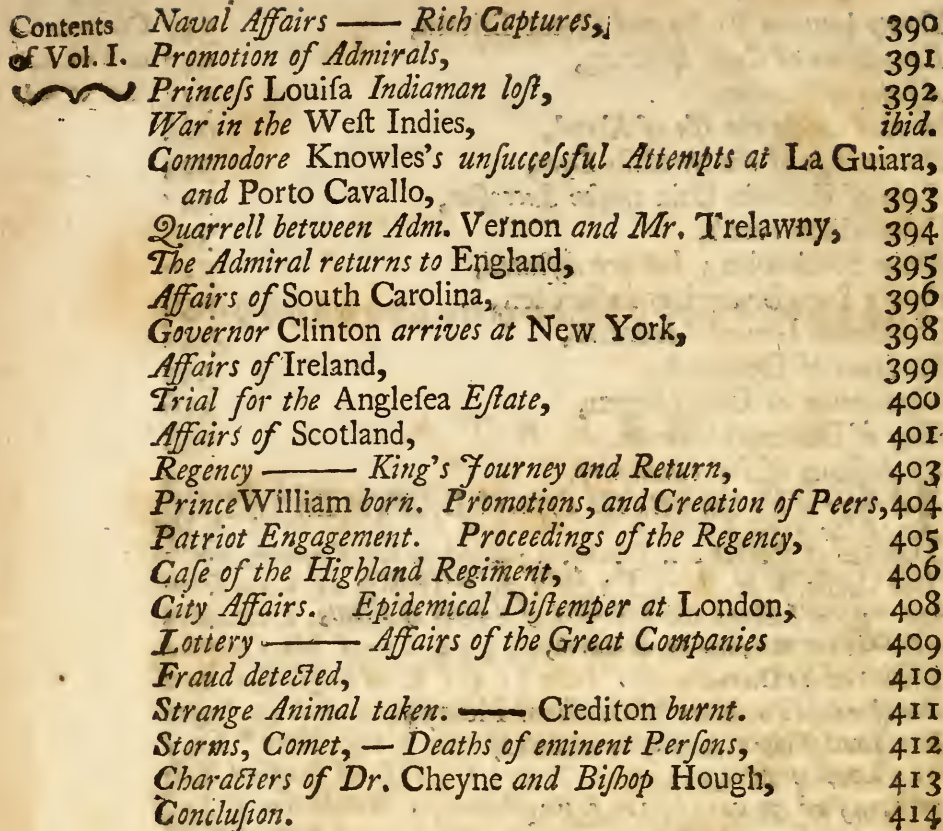 Contents of Vol. I.
Naval Affairs —— Rich Captures, 390
Promotion of Admirals, 391
Princeſs Louiſa Indiaman loſt, 392
War in the Weſt Indies, ibid.
Commodore Knowles's unſucceſsful Attempts at La Guiara,
and Porto Cavallo, 393
Quarrell between Adm. Vernon and Mr. Trelawny, 394
The Admiral returns to England, 395
Affairs of South Carolina, 396
Governor Clinton arrives at New York, 398
Affairs of Ireland, 399
Trial for the Angleſea Eſtate, 400
Affairs of Scotland, 401
Regency —— King's Journey and Return, 403
Prince William born. Promotions, and Creation of Peers, 404
Patriot Engagement. Proceedings of the Regency, 405
Caſe of the Highland Regiment, 406
City Affairs. Epidemical Diſtemper at London, 408
Lottery —— Affairs of the Great Companies 409
Fraud detected, 410
Strange Animal taken. —— Crediton burnt. 411
Storms, Comet, — Deaths of eminent Perſons, 412
Characters of Dr. Cheyne and Biſhop Hough, 413
Concluſion. 414